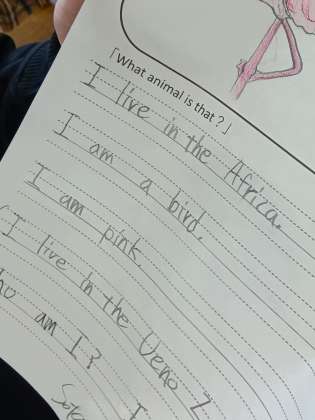 「What animal is that?」
I live in the Africa.
I am a bird.
I am pink.
I live in the Ueno Z
ho am I?